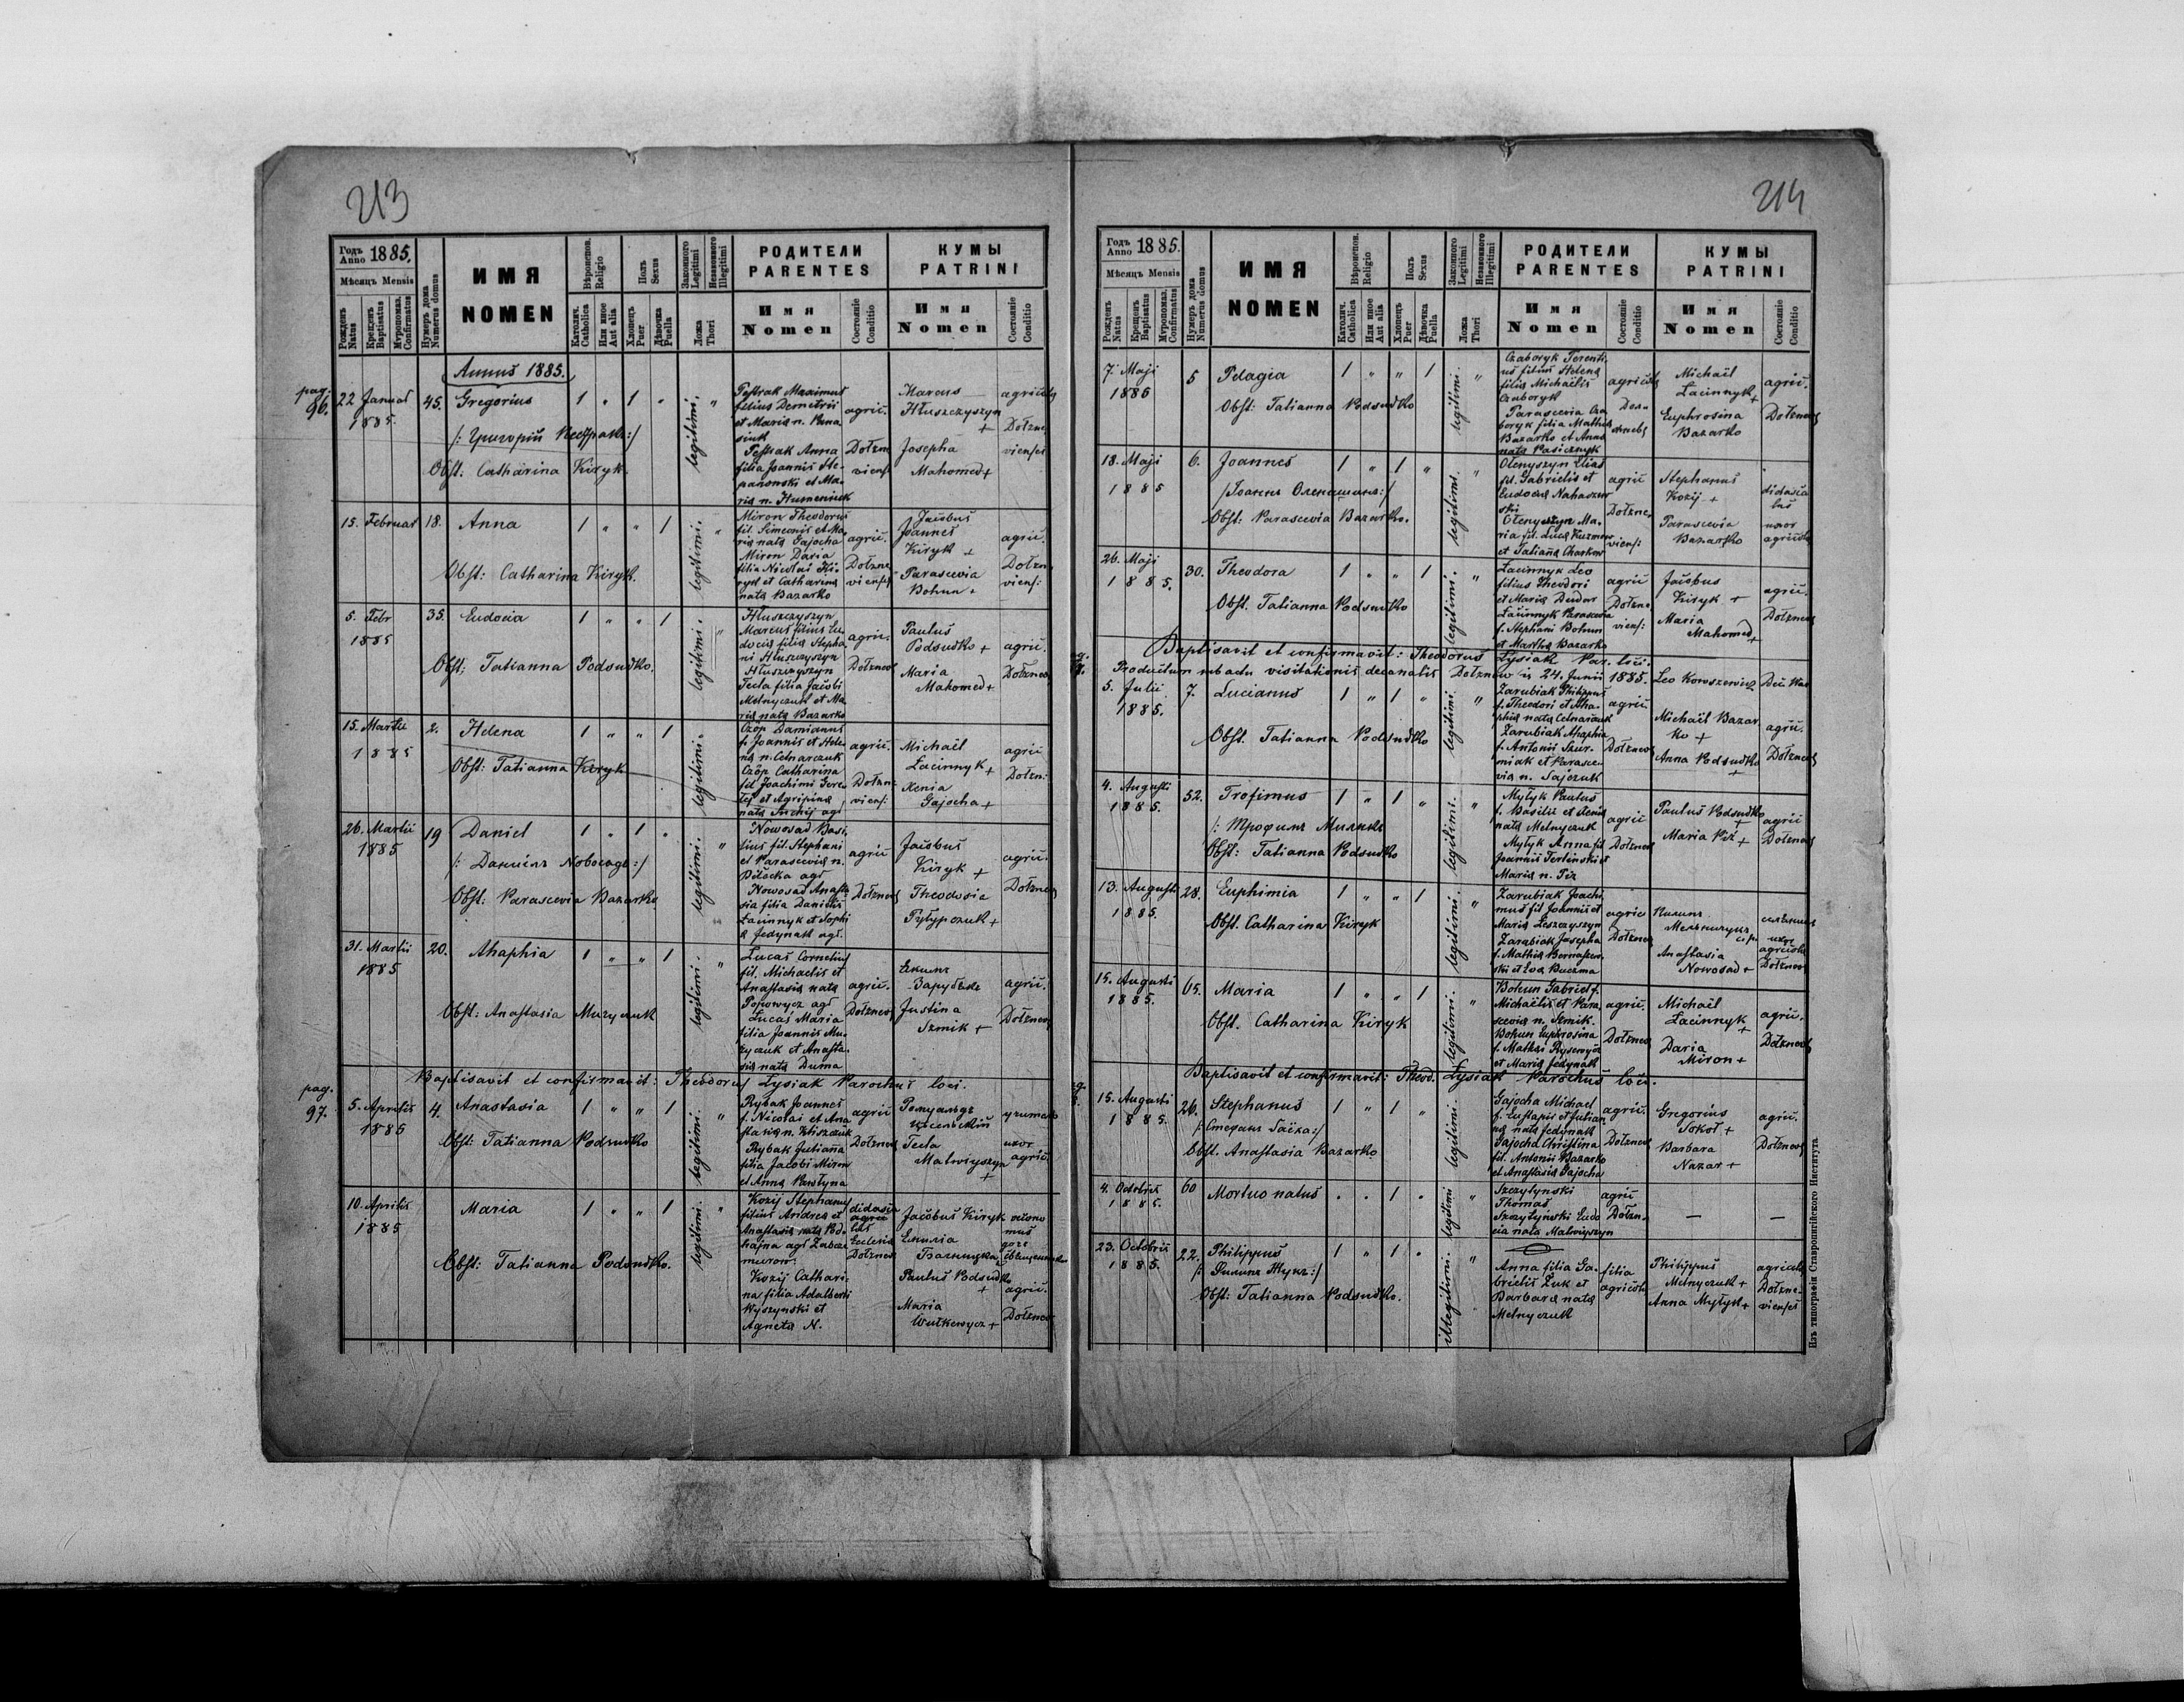 213
Годъ Anno 1885.
Мѣсяцъ Mensis
Рожденъ Natus
Крещенъ Baptisatus
Мѵропомаз. Confirmatus
Нумеръ дома Numerus domus
ИМЯ
NOMEN
Вѣроиспов. Religio
Католич. Catholica
Или иное Aut alia
Полъ Sexus
Хлопецъ Puer
Дѣвочка Puella
Законного Legitimi
Незаконного Illegitimi
Ложа Thori
РОДИТЕЛИ
PARENTES
Имя
Nomen
Состояніе Conditio
КУМЫ
PATRINI
Имя
Nomen
Состояніе Conditio
Annus 1885.
pag. 96.
22 Januar 1885.
45.
Gregorius
1 " 1 "
legitimi.
Obst: Catharina Kiryk.
Pestrak Maximus
filius Demetrii
et Maria n. Pana
siuk
Pestrak Anna
filia Joannis Ste-
panowski et Ma-
ria n. Humeniuk
agric.
Dołzn
viens
Marcus
Hłuszczyszyn
+
Josepha
Mahomed +
agricola
Dołzne
vienses
15. Februar
18.
Anna
1 " " 1
legitimi.
Obst: Catharina Kiryk.
Miron Theodorus
fil. Simeonis et Ma-
ria nata Gajocha
Miron Daria
filia Nicolai Ki-
ryk et Catharina
nata Bazarko
agric.
Dołzne
viens
Jacobus
Joannes
Kiryk +
Parascevia
Bohun +
agric.
Dołzn
viens:
5. Febr
1885
35.
Eudocia
1 " " 1
legitimi.
Obst: Tatianna Podsudko.
Hłuszczyszyn
Marcus filius Eu-
docia filia Stepha
ni Hłuszczyszyn
Hłuszczyszyn
Tecla filia Jacobi
Melnyczuk et Ma
ria nata Bazarko
agric.
Dołzneos
Paulus
Podsudko +
Maria
Mahomed +
agric.
Dołzneos
15. Martii
1885
2.
Helena
1 " " 1
legitimi.
Obst: Tatianna Kiryk
Czöp Damianus
f. Joannis et Hele-
na n. Celnarczuk
Czöp Catharina
fil Joachimi
et Agripina
agric.
Dołzn:
viens:
Michaël
Łacinnyk +
Xenia
Gajocha +
agric
Dołzn:
26. Martii
1885
19
Daniel
1 " 1 "
legitimi.
/: Данiилъ Новосадъ :/
Obst: Parascevia Bazarko
Nowosad Basi-
lius fil. Stephani
et Parascevia n.
agr
Nowosad Anasta
sia filia Danielis
Łacinnyk et Sophi
a Jedynak agr.
agric
Dołzneos
Jacobus
Kiryk +
Theodosia
+
agric.
Dołzneos
31. Martii
1885
20.
Ahaphia
1 " " 1
legitimi.
Obst: Anastasia Muzyczuk
Lucas Cornelius
fil. Michaelis et
Anastasia nata
Popowycz agr
Lucas Maria
filia Joannis Mu-
zyczuk et Anasta-
sia nata Duma
agric.
Dołzneos
Justina
Szmik +
agric.
Dołzneos
Baptisavit et confirmavit: Theodorus Lysiak Parochus loci.
pag. 97.
5. Aprilis
1885
4.
Anastasia
1 " " 1
legitimi.
Obst: Tatianna Podsudko
Rybak Joannes
f. Nicolai et Ana
stasia n.
Rybak Juliana
filia Jacobi Miron
et Anna
agric
Dołzneos
Tecla
Matwiyszyn
+
uxor
agric.
10. Aprilis
1885
Maria
1 " " 1
legitimi.
Obst: Tatianna Podsudko.
Kozij Stephanus
filius Andrea et
Anastasia nata Pod-
hajna agr
Kozij Cathari-
na filia Adalberti
Wyszynski et
Agneta N.
Dołzneos
Jacobus Kiryk
Емилія
Paulus Podsudko
+
Maria
Wutkewycz +
agric.
Dołzneos
214
Годъ Anno 1885.
Мѣсяцъ Mensis
Рожденъ Natus
Крещенъ Baptisatus
Мѵропомаз. Confirmatus
Нумеръ дома Numerus domus
ИМЯ
NOMEN
Вѣроиспов. Religio
Католич. Catholica
Или иное Aut alia
Полъ Sexus
Хлопецъ Puer
Дѣвочка Puella
Законного Legitimi
Незаконного Illegitimi
Ложа Thori
РОДИТЕЛИ
PARENTES
Имя
Nomen
Состояніе Conditio
КУМЫ
PATRINI
Имя
Nomen
Состояніе Conditio
7. Maji
1885
5
Pelagia
1 " " 1
legitimi.
Obst: Tatianna Podsudko
Czaboryk Terenti
us filius Helena
filia Michaëlis
Czaboryk
Parascevia Cza
boryk filia Mathia
Bazarko et Anna
nata Pasicznyk
agricola
Michaël
Łacinnyk +
Euphrosina
Bazarko
agric.
Dołzneos
18. Maji
1885
6.
Joannes
1 " 1 "
legitimi.
Obst: Parascevia Bazarko.
Ołenyszyn Elias
fil. Gabrielis et
Eudocia Nahaszew
ski
Ołenyszyn Ma-
ria fil. Luca Kuzmow
et Tatiana
agric
Dołzne
viens:
Stephanus
Kozij +
Parascevia
Bazarko
didasca
lus
uxor
agricola
26. Maji
1885.
30.
Theodora
1 " " 1
legitimi.
Obst. Tatianna Podsudko
Łacinnyk Leo
filius Theodori
et Maria Dudar
Łacinnyk Parascevia
f. Stephani Bohun
et Martha Bazarko
agric
Dołzne
viens:
Jacobus
Kiryk +
Maria
Mahomed +
agric.
Dołzneos
Baptisavit et confirmavit: Theodorus Lysiak Par. loci.
Productum in actu visitationis decanalis Dołzniow is 24. Junii 1885. Leo
5. Julii
1885.
7.
Lucianus
1 " 1 "
legitimi.
Obst. Tatianna Podsudko
Zarubiak Philippus
f. Theodori et Aha-
phia nata Celnarczuk
Zarubiak Ahaphia
f. Antonii Szur-
miak et Parasce-
via n. Sajczuk
agric
Dołzneos
Michaël Bazar
ko +
Anna Podsudko
+
agric.
Dołzneos
4. Augusti
1885.
52.
Trofimus
1 " 1 "
legitimi.
Obst: Tatianna Podsudko
Mytyk Paulus
f. Basilii et Xenia
nata Melnyczuk
Mytyk Anna fil
Joannis
Maria n.
agric
Dołzneos
Paulus Podsudko
+
Maria
agric
Dołzneos
13. Augusti
1885.
28.
Euphimia
1 " " 1
legitimi.
Obst. Catharina Kiryk
Zarubiak Joachi
mus fil Joannis et
Maria Leszczyszyn
Zarubiak Josepha
f. Mathia Bernaszew
ski et Eva Buczma
agric
Dołzneos
Anastasia
Nowosad +
uxor
agricola
Dołzneos
15. Augusti
1885.
65.
Maria
1 " " 1
legitimi.
Obst. Catharina Kiryk
Bohun Gabriel f.
Michaëlis et Para-
scevia n. Szmik.
Bohun Euphrosina
f. Mathei
et Maria Jedynak
agric.
Dołzneos
Michaël
Łacinnyk
+
Daria
Miron +
agric.
Dołzneos
Baptisavit et confirmavit: Theod. Lysiak Parochus loci.
15. Augusti
1885.
26.
Stephanus
1 " 1 "
legitimi.
Obst. Anastasia Bazarko
Gajocha Michael
f. Eustapii et Julian
na nata Jedynak
Gajocha Christina
fil. Antonii Bazarko
et Anastasia Gajocha
agric.
Dołzneos
Gregorius
Sokoł +
Barbara
Nazar +
agric.
Dołzneos
4. Octobris
1885.
60
Mortuo natus
" " 1 "
legitimi
Szczytynski
Thomas
Szczytynski Eudo
cia nata Matwiyszyn
agric
Dołzn.
— —
23. Octobris
1885.
22.
Philippus
1 " 1 "
illegitimi.
/: Филипъ Жукъ :/
Obst: Tatianna Podsudko.
Anna filia Ga-
brielis Zuk et
Barbara nata
Melnyczuk
filia
agricola
Philippus
Melnyczuk +
Anna Mytyk +
agricola
Dołzne-
vienses
Изъ типографіи Ставропигійского Института.